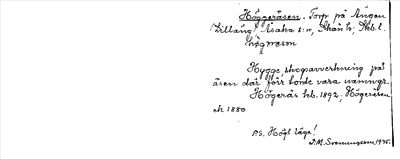 Höggeråsen. Torp på Ängen
Lilläng, Asaka s:n,
Höggråsen
Hygge, skogsavverkning på
åsen där förr torde vara namngr.
Högerås hb. 1892, Högeråsen
ek 1880
P.S. Högt läge!
J.M. Svenningsson, 1935.